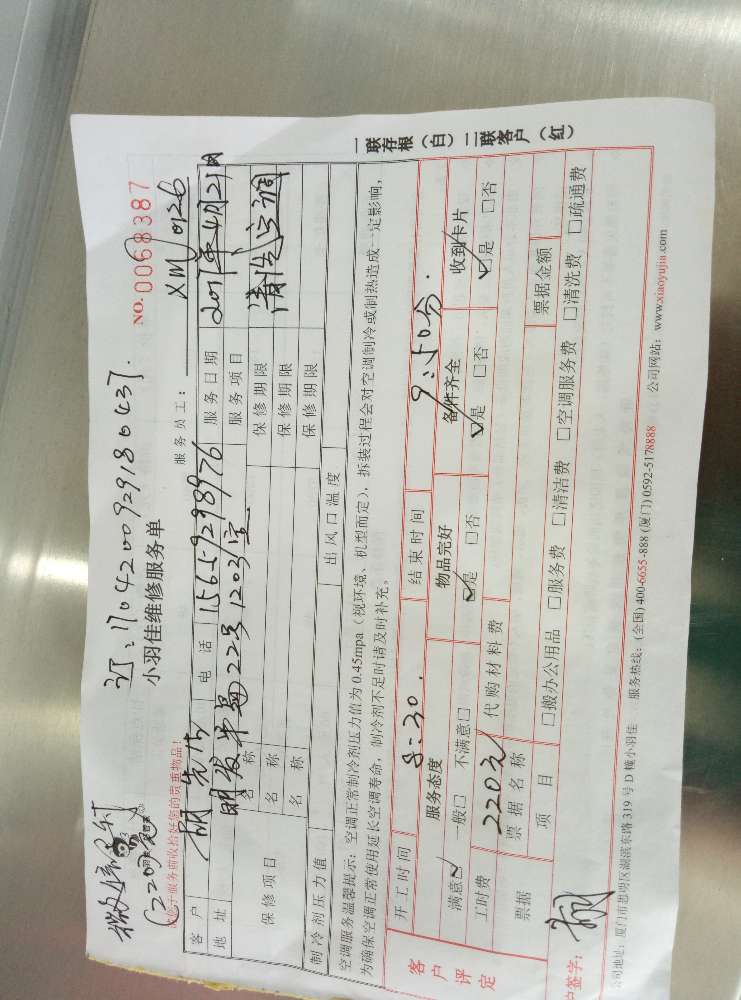 订:1704200929180437.
(220元)
小羽佳维修服务单
NO. 0068387
请您于服务前收拾好您的贵重物品!
服务员工: XM0126
客户 先生 电话 15659298976 服务日期 2017年4月21日
地址 明发半岛22号1203室 服务项目 清洗空调
保修项目 名称 保修期限
名称 保修期限
名称 保修期限
制冷剂压力值 出风口温度
空调服务温馨提示:空调正常制冷剂压力值为 0.45mpa(视环境、机型而定),拆装过程会对空调制冷或制热造成一定影响,
为确保空调正常使用延长空调寿命,制冷剂不足时请及时补充。
一联存根(白)二联客户(红)
客户评定
开工时间 8:30. 结束时间 9:50分.
服务态度 物品完好 备件齐全 收到卡片
满意☑ 一般□ 不满意□ ☑是 □否 ☑是 □否 ☑是 □否
工时费 220元 代购材料费
票据 票据名称 票据金额
项目 □搬办公用品 □服务费 □清洁费 □空调服务费 □清洗费 □疏通费
户签字:
公司地址:厦门市思明区湖滨东路 319 号 D 幢小羽佳 服务热线:(全国) 400-6655-888 (厦门) 0592-5178888 公司网站:www.xiaoyujia.com